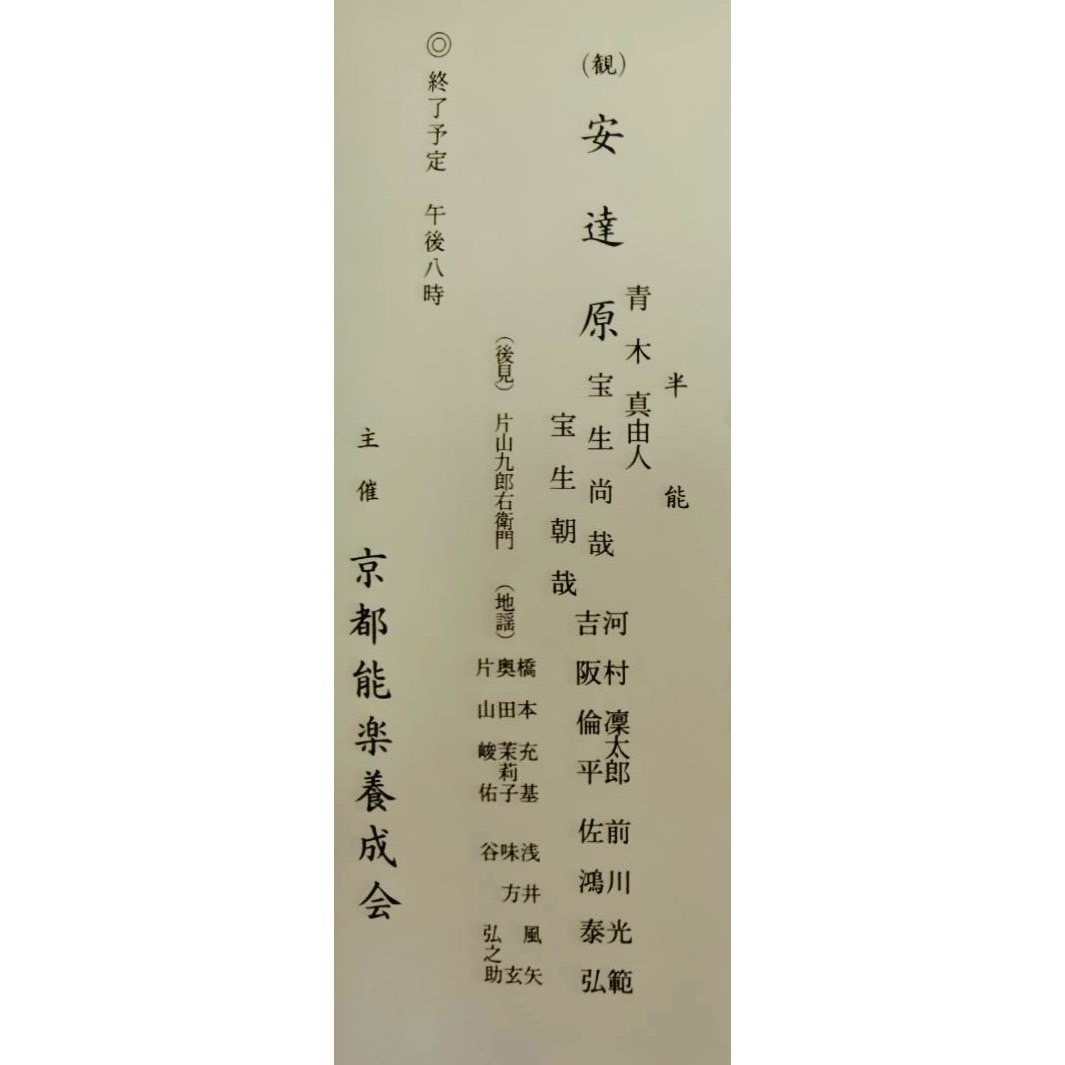 半能
(観) 安達原
青木真由人
宝生尚哉
宝生朝哉
河村凜太郎
吉阪倫平
前川光範
佐鴻泰弘
(後見) 片山九郎右衛門
(地謡)
橋本充基
奥田茉莉子
片山峻佑
浅井風矢
味方玄
谷弘之助
◎終了予定 午後八時
主催 京都能楽養成会